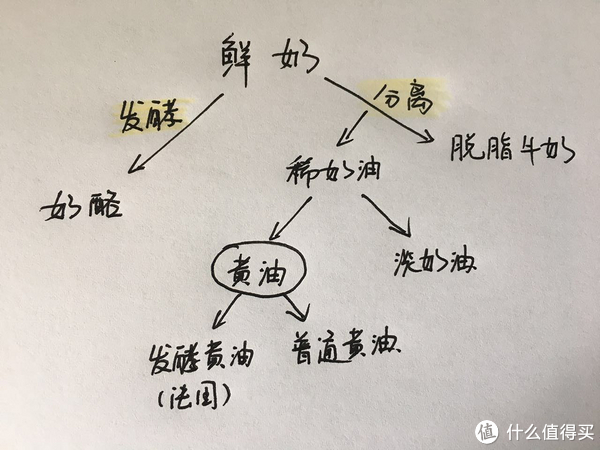 鲜奶
发酵
分离
奶酪
稀奶油
脱脂牛奶
黄油
淡奶油
发酵黄油
(法国)
普通黄油
值 什么值得买